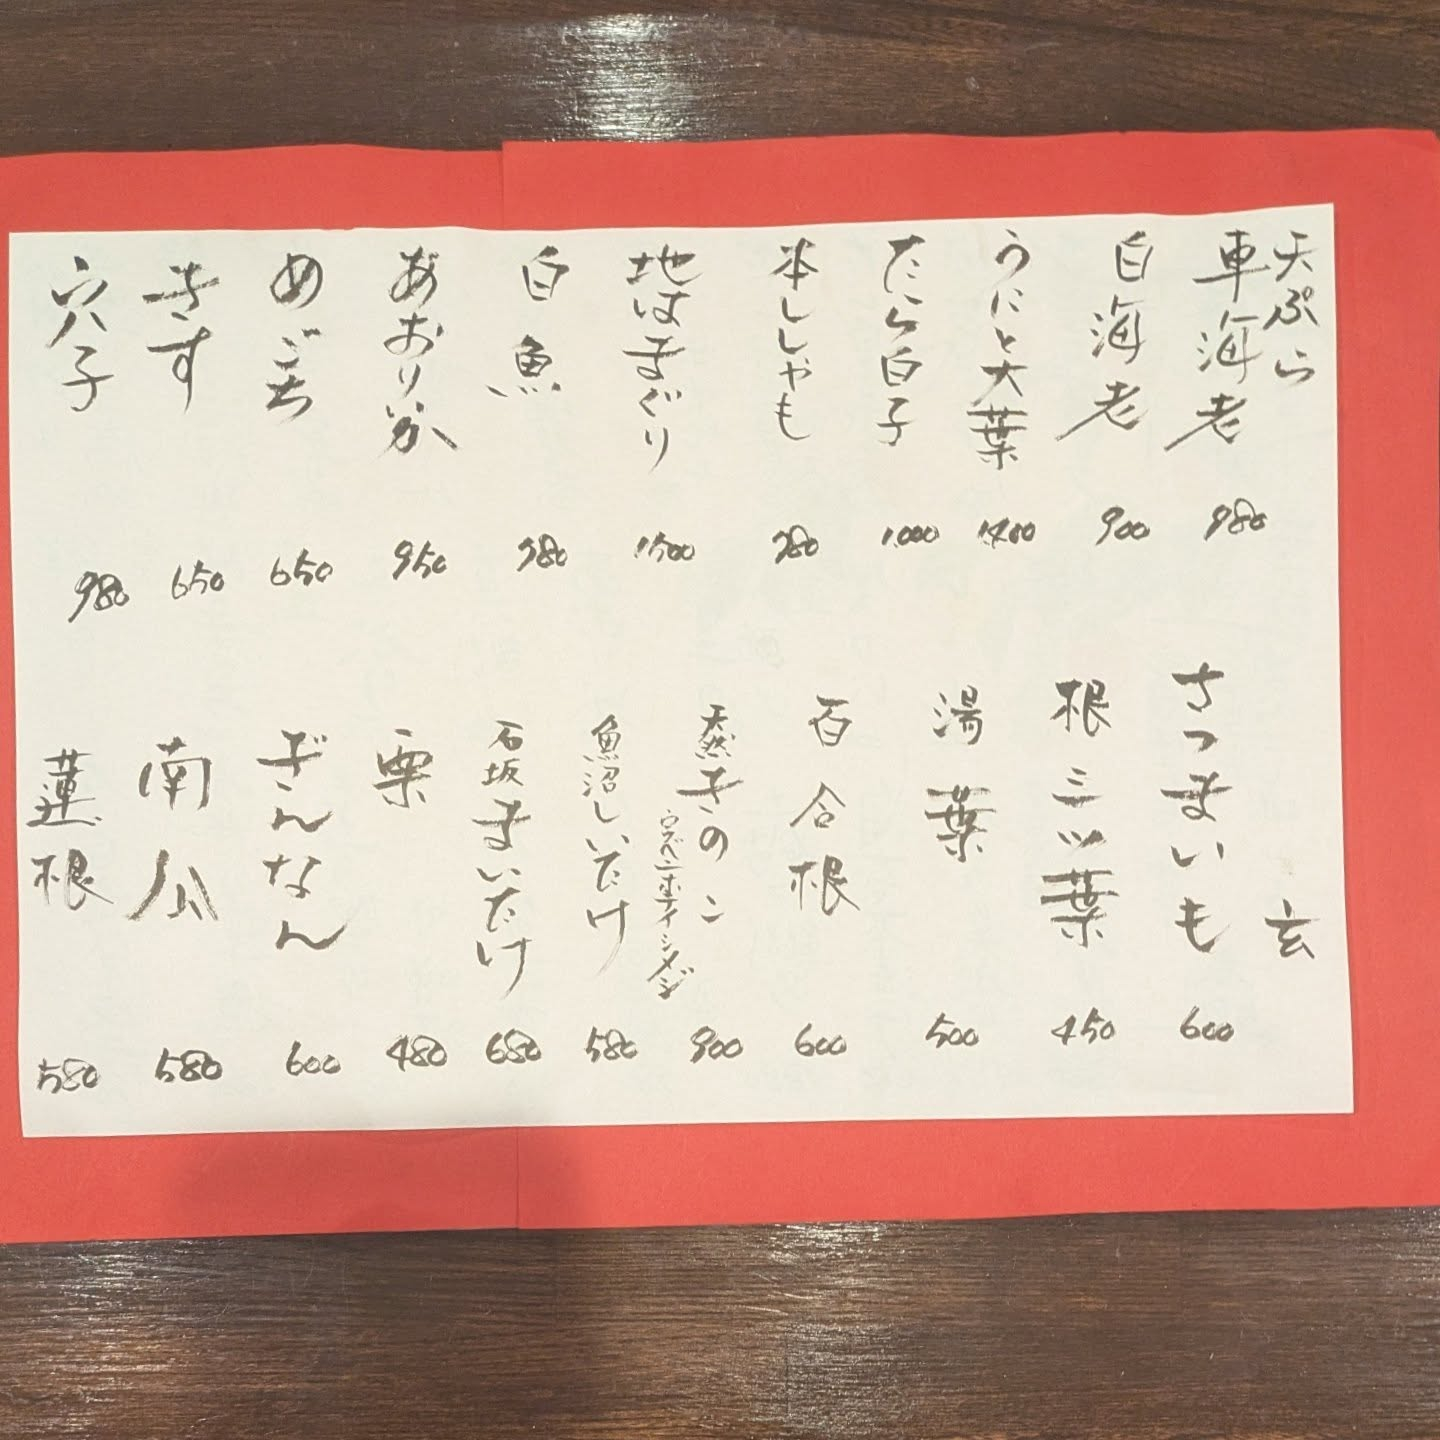 天ぷら 玄
車海老 980
白海老 900
うにと大葉 1400
たら白子 1000
本ししゃも 780
地はまぐり 1500
白魚 980
あおりいか 950
めごち 650
きす 650
穴子 980
さつまいも 600
根三ッ葉 450
湯葉 500
百合根 600
天然きのこ 900
ウスベニホテイシメジ
魚沼しいたけ 580
石坂まいたけ 680
栗 480
ぎんなん 600
南瓜 580
蓮根 580